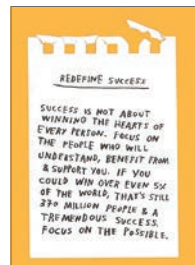 REDEFINE SUCCESS
SUCCESS IS NOT ABOUT
WINNING THE HEARTS OF
EVERY PERSON. FOCUS ON
THE PEOPLE WHO WILL
UNDERSTAND, BENEFIT FROM
& SUPPORT YOU. IF YOU
COULD WIN OVER EVEN 5%
OF THE WORLD, THAT'S STILL
370 MILLION PEOPLE & A
TREMENDOUS SUCCESS.
FOCUS ON THE POSSIBLE.